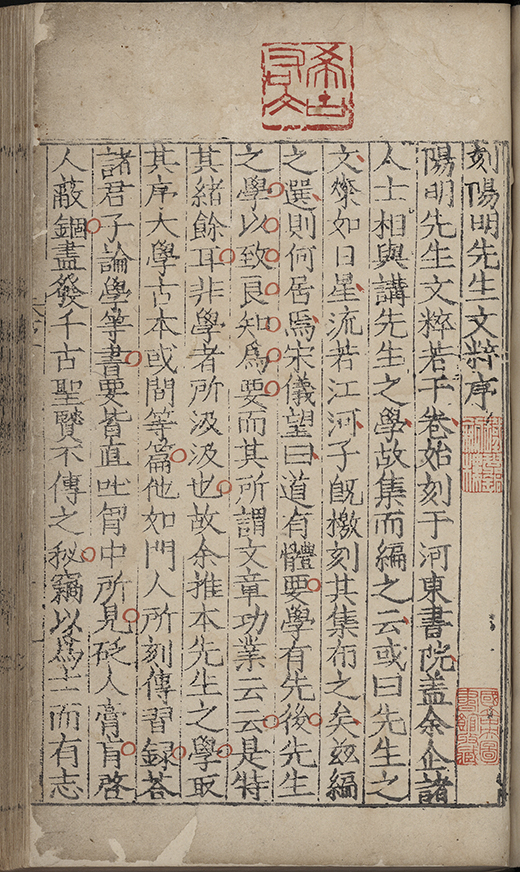 刻陽明先生文粹序
陽明先生文粹若干卷始刻于河東書院蓋余企諸
人士相與講先生之學故集而編之云或曰先生之
文燦如日星流若江河子既檄刻其集布之矣茲編
之選則何居焉宋儀望曰道有體要學有先後先生
之學以致良知為要而其所謂文章功業云云是特
其緒餘耳非學者所汲汲也故余推本先生之學取
其序大學古本或問等篇他如門人所刻傳習錄荅
諸君子論學等書要皆直吐胷中所見砭人膏肓啓
人蔽錮盡發千古聖賢不傳之秘竊以為士而有志